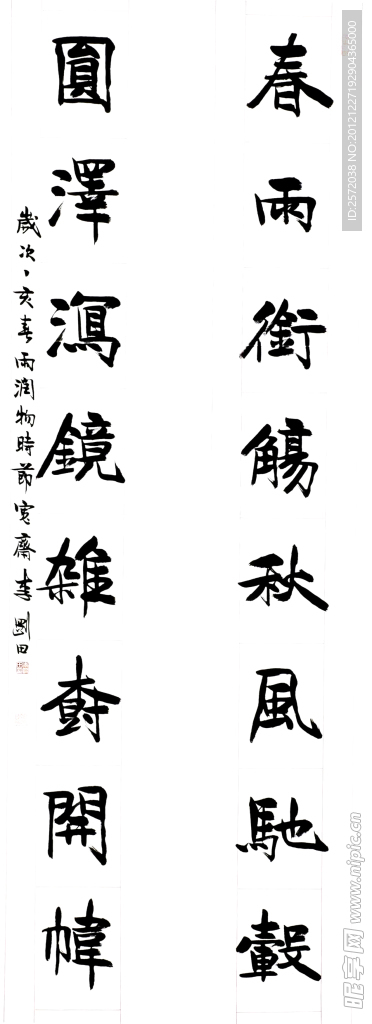 春雨銜觴秋風馳轂
圓澤瀉鏡雜樹開幃
歲次丁亥春雨潤物時節寬齋李剛田
ID:2572038 NO:20121227192904365000
昵享网 www.nipic.cn